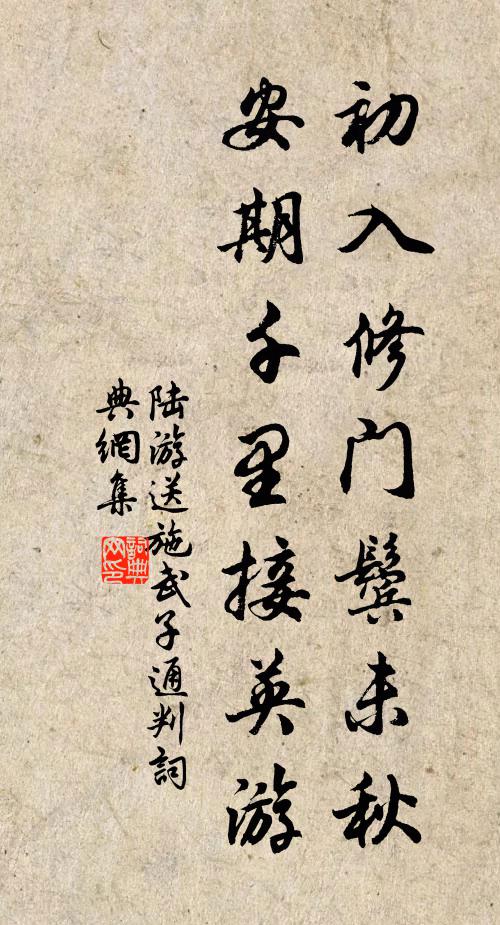 初入修门鬓未秋
安期千里接英游
陆游送施武子通判詞
典網集
詞典網印